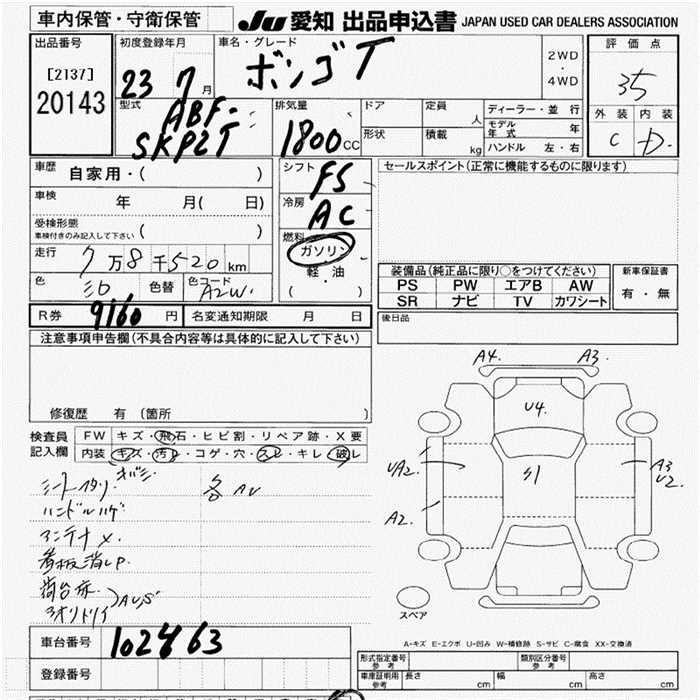 車内保管・守衛保管
JU 愛知 出品申込書 JAPAN USED CAR DEALERS ASSOCIATION
出品番号
[2137]
20143
初度登録年月
23 7月
車名・グレード
ボンゴT
2WD
・
4WD
評価点
3.5
外装 内装
C D
型式
ABF-
SKP2T
排気量
1800cc
ドア
形状
定員 人
積載 kg
ディーラー・並行
モデル年式 年
ハンドル 左・右
車歴
自家用・( )
車検
年 月( 日)
受検形態
車検付きのみ記入して下さい ( )
走行
7万8千520km
色
シロ
色替
色コード
A2W
シフト
F5
冷房
AC
燃料
ガソリン
軽・油
( )
セールスポイント(正常に機能するものに限ります)
装備品(純正品に限り○をつけてください)
PS PW エアB AW
SR ナビ TV カワシート
新車保証書
有・無
R券 9160円
名変通知期限 月 日
後日品
注意事項申告欄(不具合内容等は具体的に記入して下さい)
修復歴 有(箇所 )
検査員記入欄
FW キズ・飛石・ヒビ割・リペア跡・X要
内装 キズ・汚レ・コゲ・穴・スレ・キレ・破レ
シートヘタリ
各AU
ハンドルハゲ
アンテナ×
看板消しP
荷台床
アオリトリイ
AUS
A4. A3.
U4.
UA2. S1 A3 U2.
A2.
スペア
A-キズ E-エクボ U-凹み W-補修跡 S-サビ C-腐食 XX-交換済
車台番号 102463
登録番号
形式指定番号
参考
類別区分番号
参考
車庫証明用
参考
長さ cm
幅 cm
高さ cm